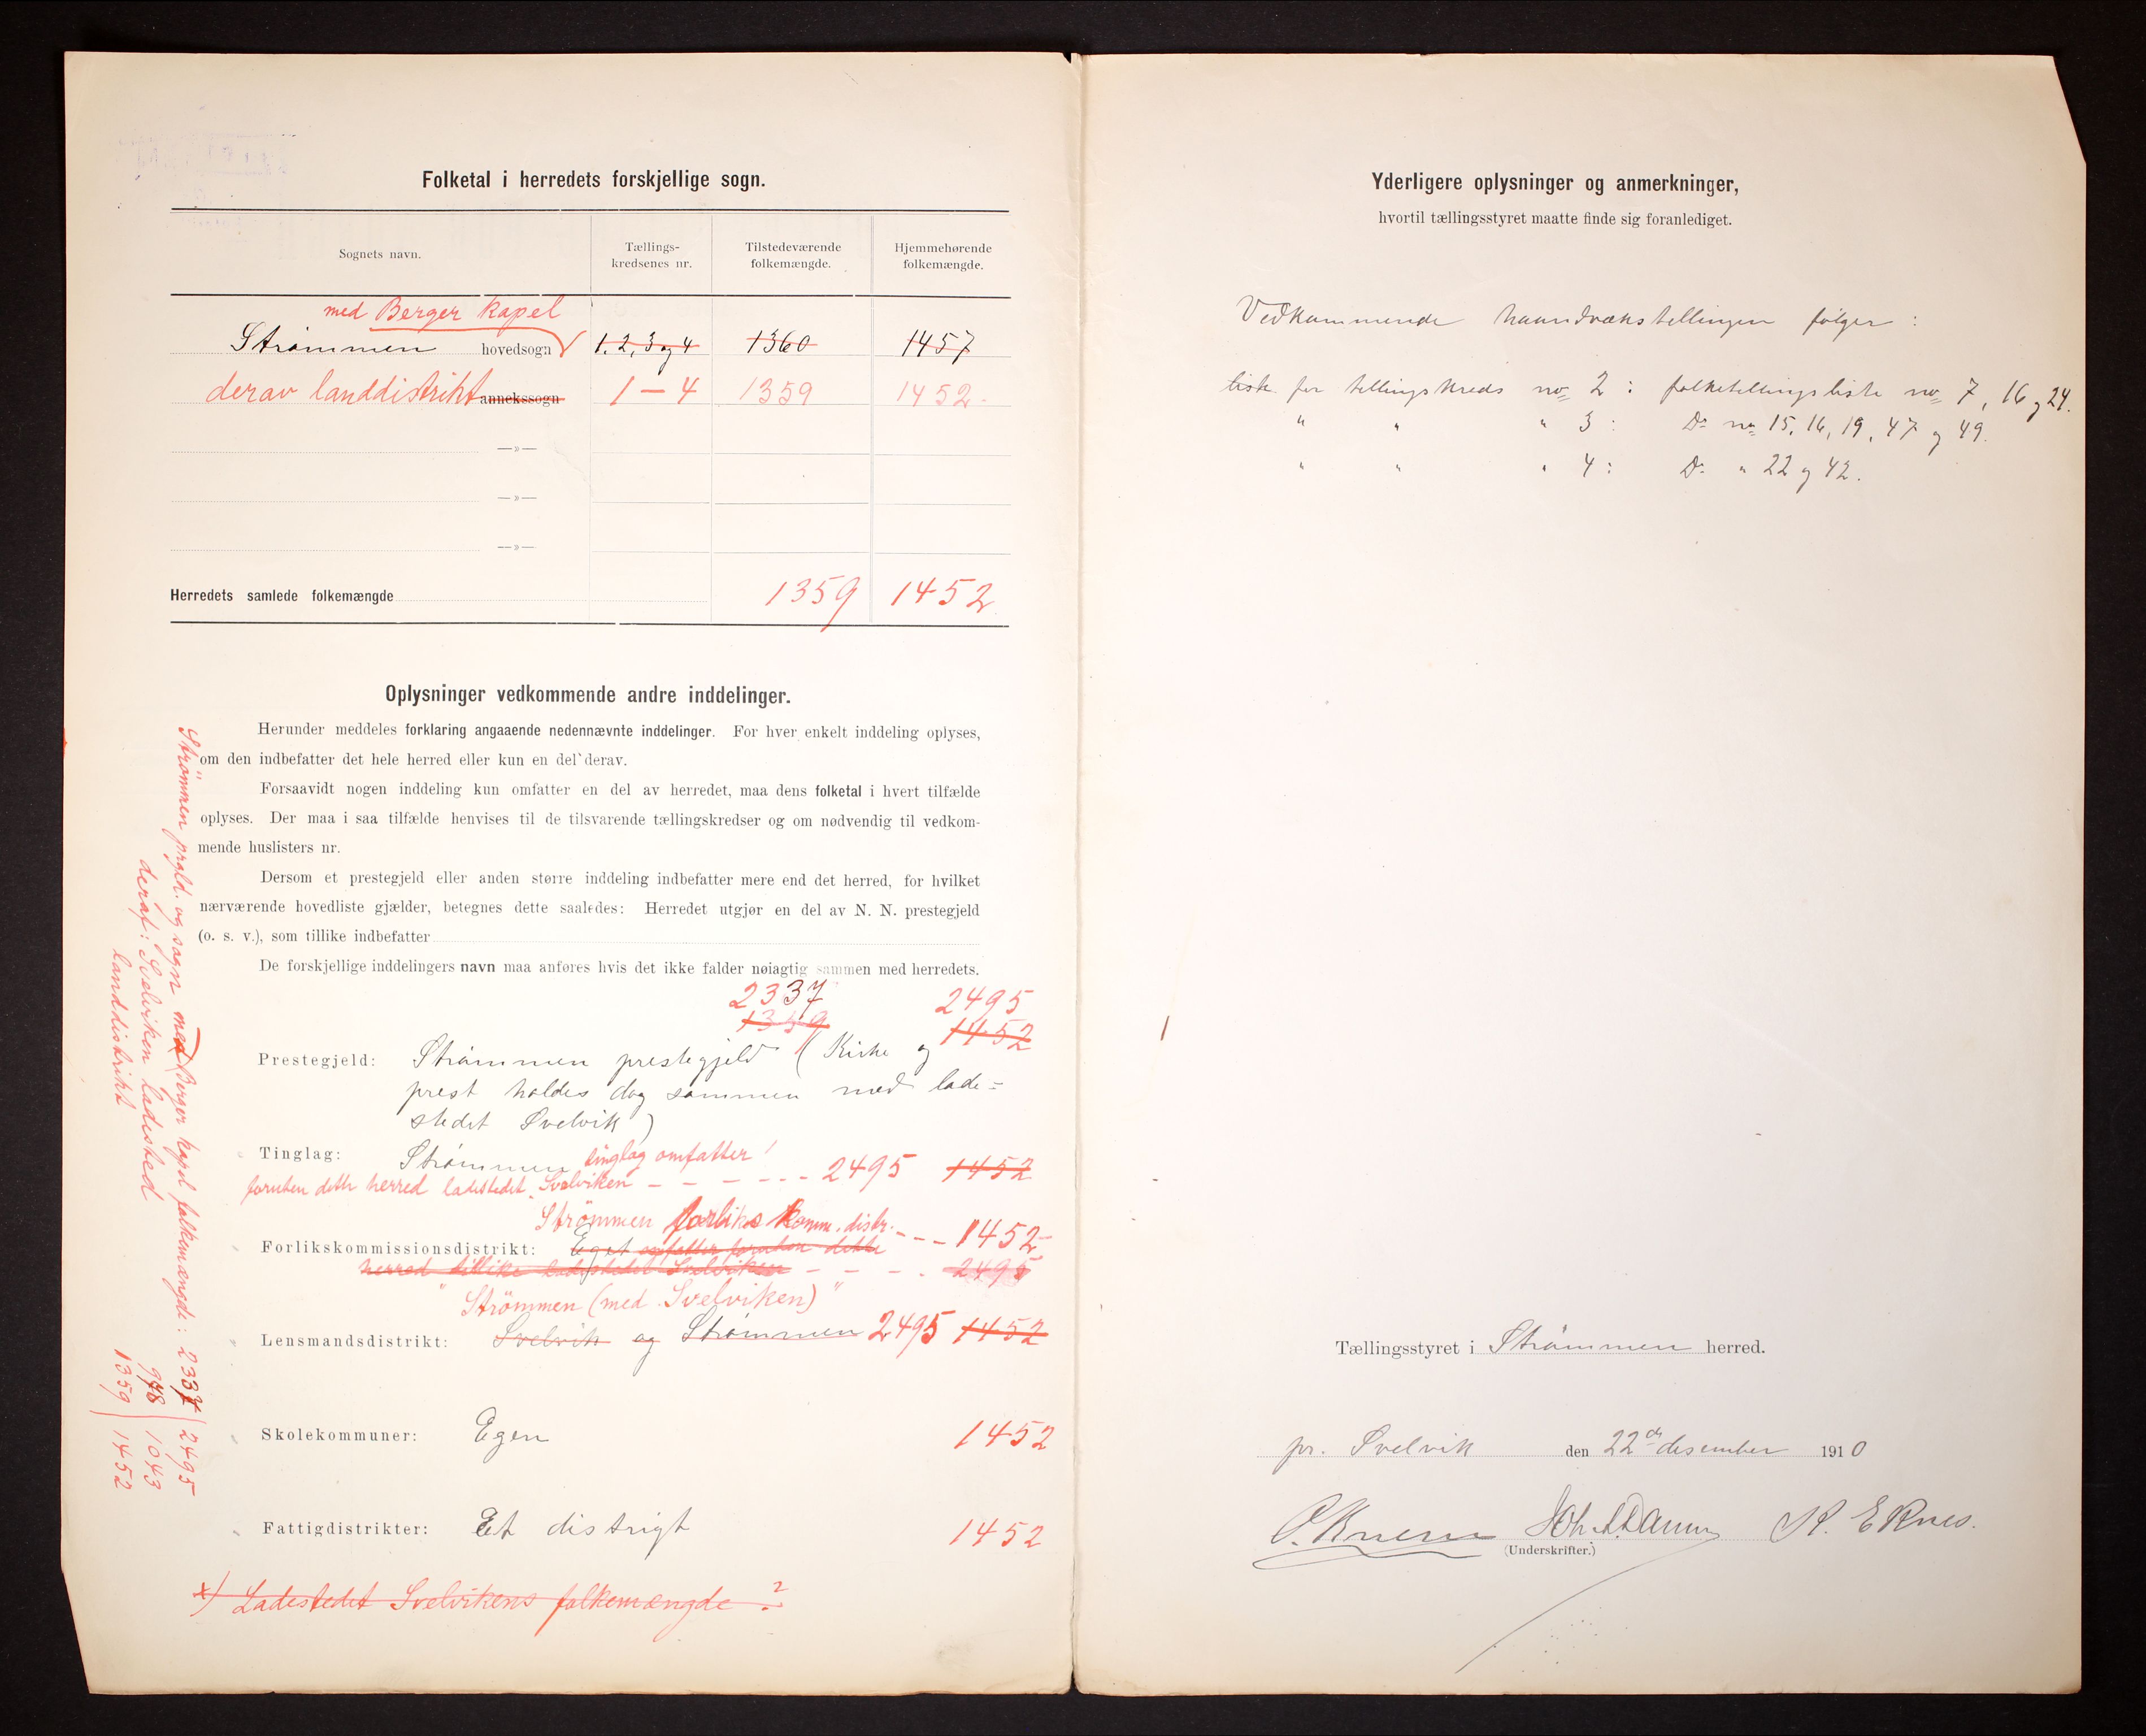 Folketal i herredets forskjellige sogn.
Sognets navn.
Tællings-
kredsenes nr.
Tilstedeværende
folkemængde.
Hjemmehørende
folkemængde.
med Berger kapel
Strømmen hovedsogn 1, 2, 3 og 4 1360 1457
derav landdistrikt annekssogn 1 — 4 1359 1452
—»—
—»—
—»—
Herredets samlede folkemængde 1359 1452
Oplysninger vedkommende andre inddelinger.
Herunder meddeles forklaring angaaende nedennævnte inddelinger. For hver enkelt inddeling oplyses,
om den indbefatter det hele herred eller kun en del derav.
Forsaavidt nogen inddeling kun omfatter en del av herredet, maa dens folketal i hvert tilfælde
oplyses. Der maa i saa tilfælde henvises til de tilsvarende tællingskredser og om nødvendig til vedkom-
mende huslisters nr.
Dersom et prestegjeld eller anden større inddeling indbefatter mere end det herred, for hvilket
nærværende hovedliste gjælder, betegnes dette saaledes: Herredet utgjør en del av N. N. prestegjeld
(o. s. v.), som tillike indbefatter
De forskjellige inddelingers navn maa anføres hvis det ikke falder nøiagtig sammen med herredets.
2337 2495
1359 1452
Prestegjeld: Strømmen prestegjeld (Kirke og
prest holdes dog sammen med lade-
stedet Svelvik)
Tinglag: Strømmen tinglag omfatter
foruten dette herred ladestedet Svelviken - - - - - - 2495 1452
Strömmen forliks komm. distr. - - - 1452
Forlikskommissionsdistrikt: Eget omfatter foruten dette
herred tillike ladestedet Svelviken - - - - 2495
"Strömmen (med Svelviken)"
Lensmandsdistrikt: Svelvik og Strømmen 2495 1452
Skolekommuner: Egen 1452
Fattigdistrikter: Et distrigt 1452
x) Ladestedet Svelvikens folkemængde ?
Strömmen prgld. og sogn med Berger kapel folkemængde: 2337 | 2495
deraf: Svelviken ladested 978 | 1043
landdistrikt 1359 | 1452
Yderligere oplysninger og anmerkninger,
hvortil tællingsstyret maatte finde sig foranlediget.
Vedkommende haandvækstellingen følger :
liste for tellingskreds no 2 : folketellingsliste no 7, 16 og 24.
" " " 3 : Do no 15, 16, 19, 47 og 49.
" " " 4 : Do " 22 og 42.
Tællingsstyret i Strømmen herred.
pr. Svelvik den 22de desember 1910
(Underskrifter.)